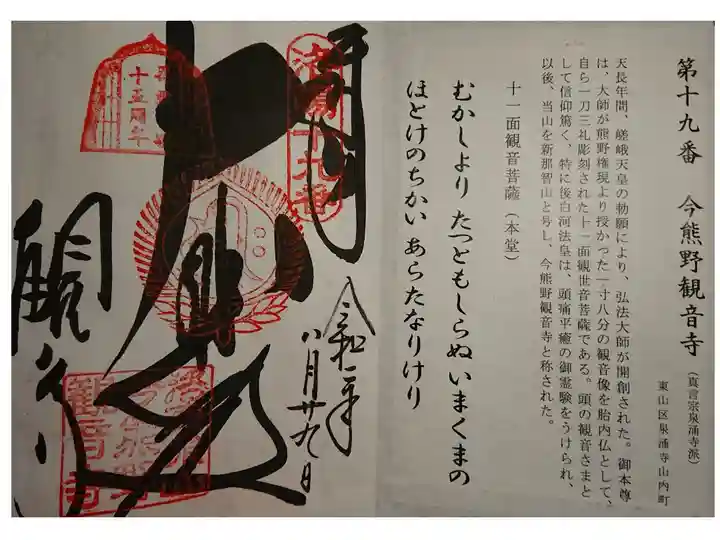 第十九番 今熊野観音寺(真言宗泉涌寺派)
東山区泉涌寺山内町
天長年間、嵯峨天皇の勅願により、弘法大師が開創された。御本尊
は、大師が熊野権現より授かった一寸八分の観音像を胎内仏として、
自ら一刀三礼彫刻された十一面観世音菩薩である。頭の観音さまと
して信仰篤く、特に後白河法皇は、頭痛平癒の御霊験をうけられ、
以後、当山を新那智山と号し、今熊野観音寺と称された。
十一面観音菩薩(本堂)
むかしより たつともしらぬ いまくまの
ほとけのちかい あらたなりけり
十九番
令和二年
八月廿九日
十五周年
観音寺